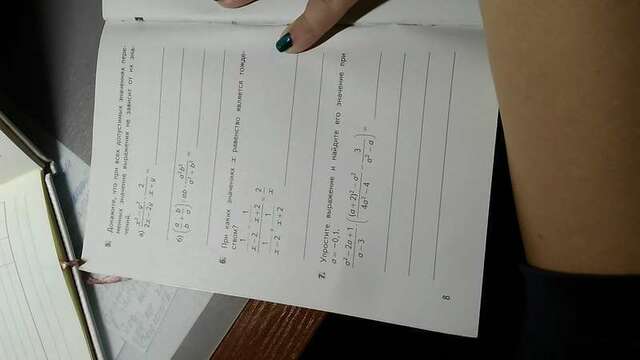 5. Докажите, что при всех допустимых значениях пере-
менных значение выражения не зависит от их зна-
чений.
а) x² - y² / 2x - 2y · 2 / x + y =
б) (a/b + b/a) : ab · a²b² / a² + b² =
6. При каких значениях x равенство является тожде-
ством?
1 / x - 2 - 1 / x + 2
1 / x - 2 + 1 / x + 2
= 2 / x
7. Упростите выражение и найдите его значение при
a = -0,1.
a² - 2a + 1 / a - 3 · ((a + 2)² - a² / 4a² - 4 - 3 / a² - a) =
8